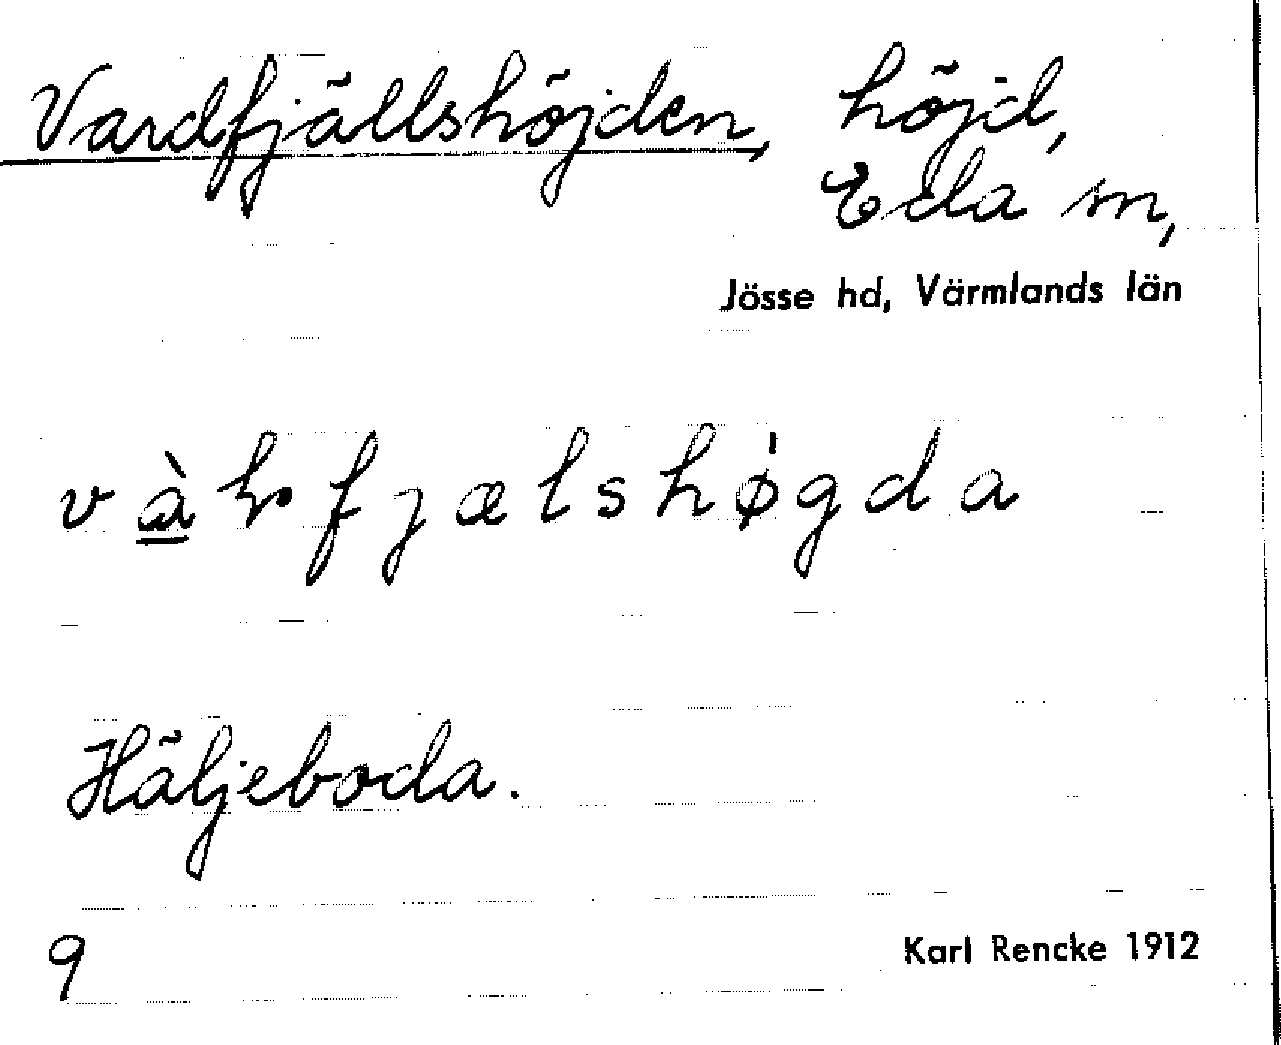 Vardfjällshöjden, höjd,
Eda sn,
Jösse hd, Värmlands län
v à r f j æ l s h ø̍ g d a
Häljeboda.
9
Karl Rencke 1912